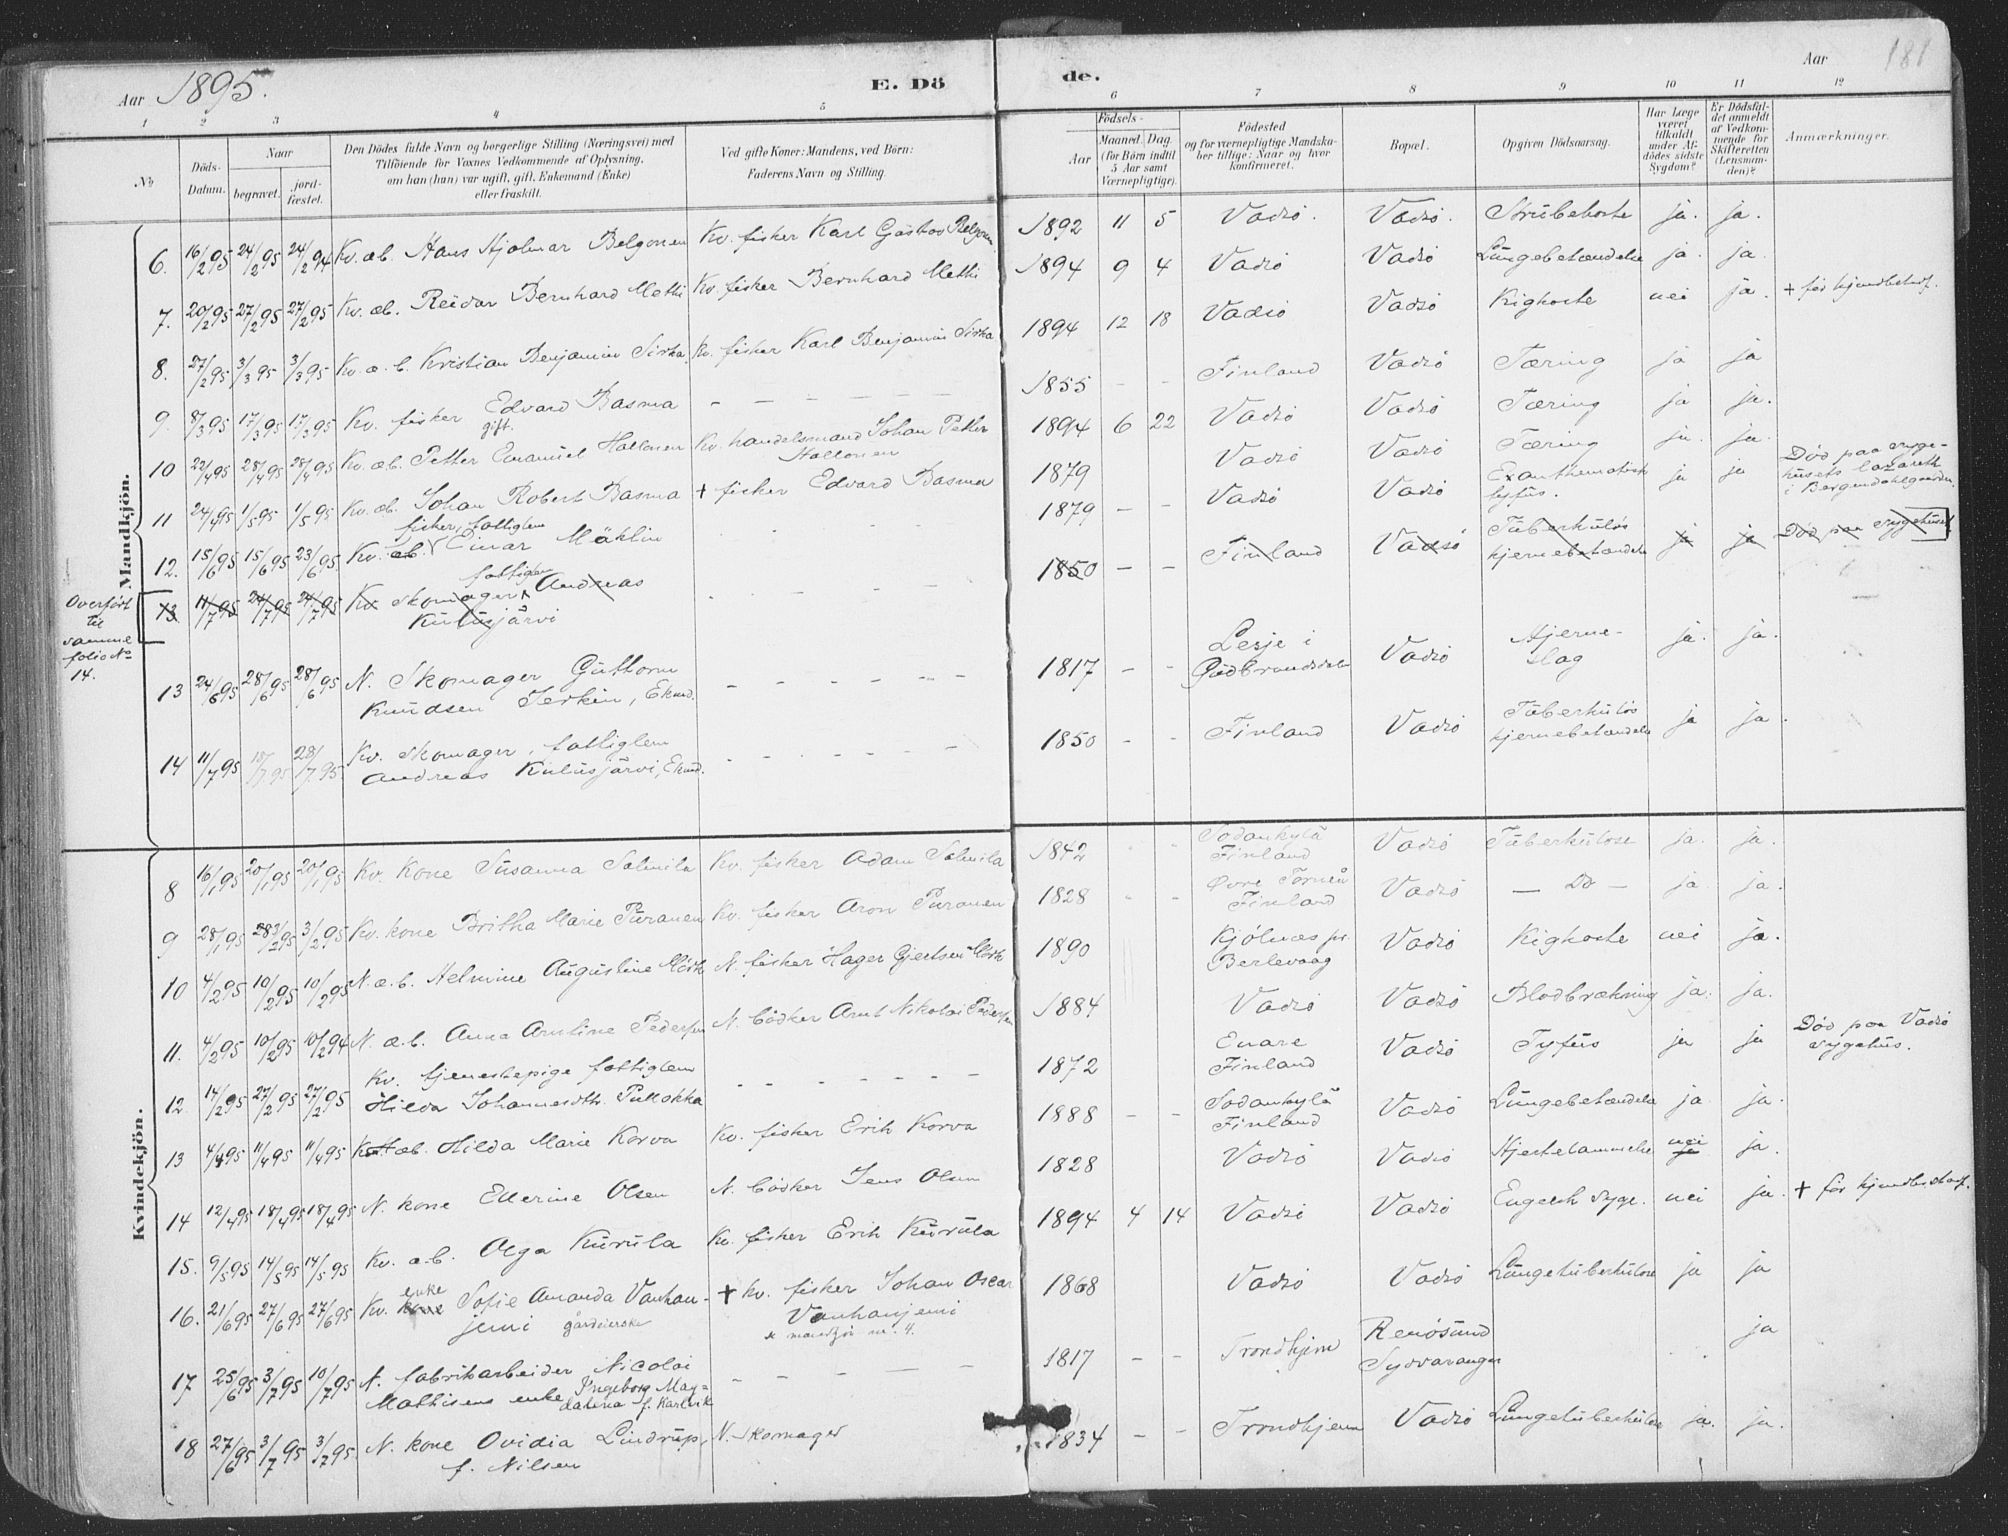 Aar 1895.
E. Döde.
Aar 181
1 2 3 4 5 6 7 8 9 10 11 12
No
Döds-Datum.
Naar
begravet.
jord-fæstet.
Den Dödes fulde Navn og borgerlige Stilling (Næringsvei) med
Tilföiende for Voxnes Vedkommende af Oplysning,
om han (hun) var ugift, gift, Enkemand (Enke)
eller fraskilt.
Ved gifte Koner: Mandens, ved Börn:
Faderens Navn og Stilling.
Födsels-
Aar
Maaned. Dag.
(for Börn indtil
5 Aar samt
Værnepligtige).
Födested
og for værnepligtige Mandska-
ber tillige: Naar og hvor
konfirmeret.
Bopæl.
Opgiven Dödsaarsag.
Har Læge
været
tilkaldt
under Af-
dödes sidste
Sygdom?
Er Dödsfal-
det anmeldt
af Vedkom-
mende for
Skifteretten
(Lensman-
den)?
Anmærkninger.
Mandkjön.
6. 16/2 95 24/2 95 24/2 94 Kv. æb. Hans Hjalmar Belgonen Kv. fisker Karl Gustav Belgonen 1892 11 5 Vadsö. Vadsö. Strubehoste ja. ja.
7. 20/2 95 27/2 95 27/2 95 Kv. æb. Reidar Bernhard Metti Kv. fisker Bernhard Metti 1894 9 4 Vadsö Vadsö Lungebetændelse ja. ja.
8. 27/2 95 3/3 95 3/3 95 Kv. æ. b. Kristian Benjamin Sirka Kv. fisker Karl Benjamin Sirka 1894 12 18 Vadsö Vadsö Kighoste nei ja. + før hjemdøbt
9. 8/3 95 17/3 95 17/3 95 Kv. fisker Edvard Basma
gift. 1855 - - Finland Vadsö Tæring ja ja
10 22/4 95 28/4 95 28/4 95 Kv. æb. Petter Emanuel Hallonen Kv. handelsmand Johan Petter
Hallonen 1894 6 22 Vadsö Vadsö Tæring ja ja.
11 24/4 95 1/5 95 1/5 95 Kv. æb. Johan Robert Basma + fisker Edvard Basma 1879 Vadsö Vadsö Tæring ja. ja.
12. 15/6 95 15/6 95 23/6 95 Kv. æb. fisker, fattiglem
Einar Mählin 1879 - - Vadsö Vadsö Exanthematisk
tyfus. ja ja Död paa syge-
husets lazareth
i Bergendahlgaarden
Overført
til
samme
folio No
14.
13 11/7 95 24/7 95 24/7 95 Kv. skomager fattiglem Andreas
Kulusjärvi 1850 - - Finland Vadsö Tuberkuløs
hjernebetændelse ja ja Död paa sygehuset
13 24/6 95 28/6 95 28/6 95 N. Skomager Guttorm
Knudsen Jerkin, Ekmd. 1817 - - Lesje i
Gudbrandsdalen Vadsö Hjerne-
slag ja. ja.
14 11/7 95 18/7 95 28/7 95 Kv. skomager, fattiglem
Andreas Kulusjärvi, Ekmd. 1850 - - Finland Vadsö Tuberkuløs
hjernebetændelse ja ja.
Kvindekjön.
8 16/1 95 20/1 95 20/1 95 Kv. Kone Susanna Salmila Kv. fisker Adam Salmila 1842 Sodankylä
Finland Vadsö Tuberkulose ja. ja.
9 28/1 95 3/2 95 3/2 95 Kv. kone Britha Marie Puranen Kv. fisker Aron Puranen 1828 Øvre Torneå
Finland Vadsö — Do — ja. ja.
10 4/2 95 10/2 95 10/2 95 N. æ. b. Helmine Augustine Mörk N. fisker Hager Gjertsen Mörk 1890 Kjölnæs pr.
Berlevaag Vadsö Kighoste nei ja.
11. 4/2 95 10/2 95 10/2 94 N. æ. b. Anna Arntine Pedersen N. bödker Arnt Nikolai Pedersen 1884 Vadsö Vadsö Blodbrækning ja. ja.
12. 14/2 95 27/2 95 27/2 95 Kv. tjenestepige fattiglem
Hilda Johannesdtr. Pukokka 1872 Enare
Finland Vadsö Tyfus ja ja Död paa Vadsö
sygehus.
13 4/4 95 11/4 95 11/4 95 Kv. æb. Hilda Marie Korva Kv. fisker Erik Korva 1888 - - Sodankylä
Finland Vadsö Lungebetændelse ja. ja.
14 12/4 95 18/4 95 18/4 95 N. kone Ellerine Olsen N. bödker Jens Olsen 1828 Vadsö Vadsö Hjertelammelse nei ja.
15. 9/5 95 14/5 95 14/5 95 Kv. æ.b. Olga Kurula Kv. fisker Erik Kurula 1894 4 14 Vadsö Vadsö Engelsk syge. nei ja. + før hjemdøbt
16. 21/6 95 27/6 95 27/6 95 Kv. kone enke Sofie Amanda Vanhan-
jemi gårdeierske + kv. fisker Johan Oscar
Vanhanjemi
se mandkjön nr. 4. 1868 Vadsö Vadsö Lungetuberkulose ja ja
17 25/6 95 3/7 95 10/7 95 N. fabrikarbeider Nicolai
Mathisens enke Ingeborg Mag-
dalena f. Karlvik 1817 - - Trondhjem Renösund
Sydvaranger ja
18 27/6 95 3/7 95 3/7 95 N. kone Ovidia Lindrup,
f. Nilsen N. skomager 1834 - - Trondhjem Vadsö Lungetuberkulose ja. ja.